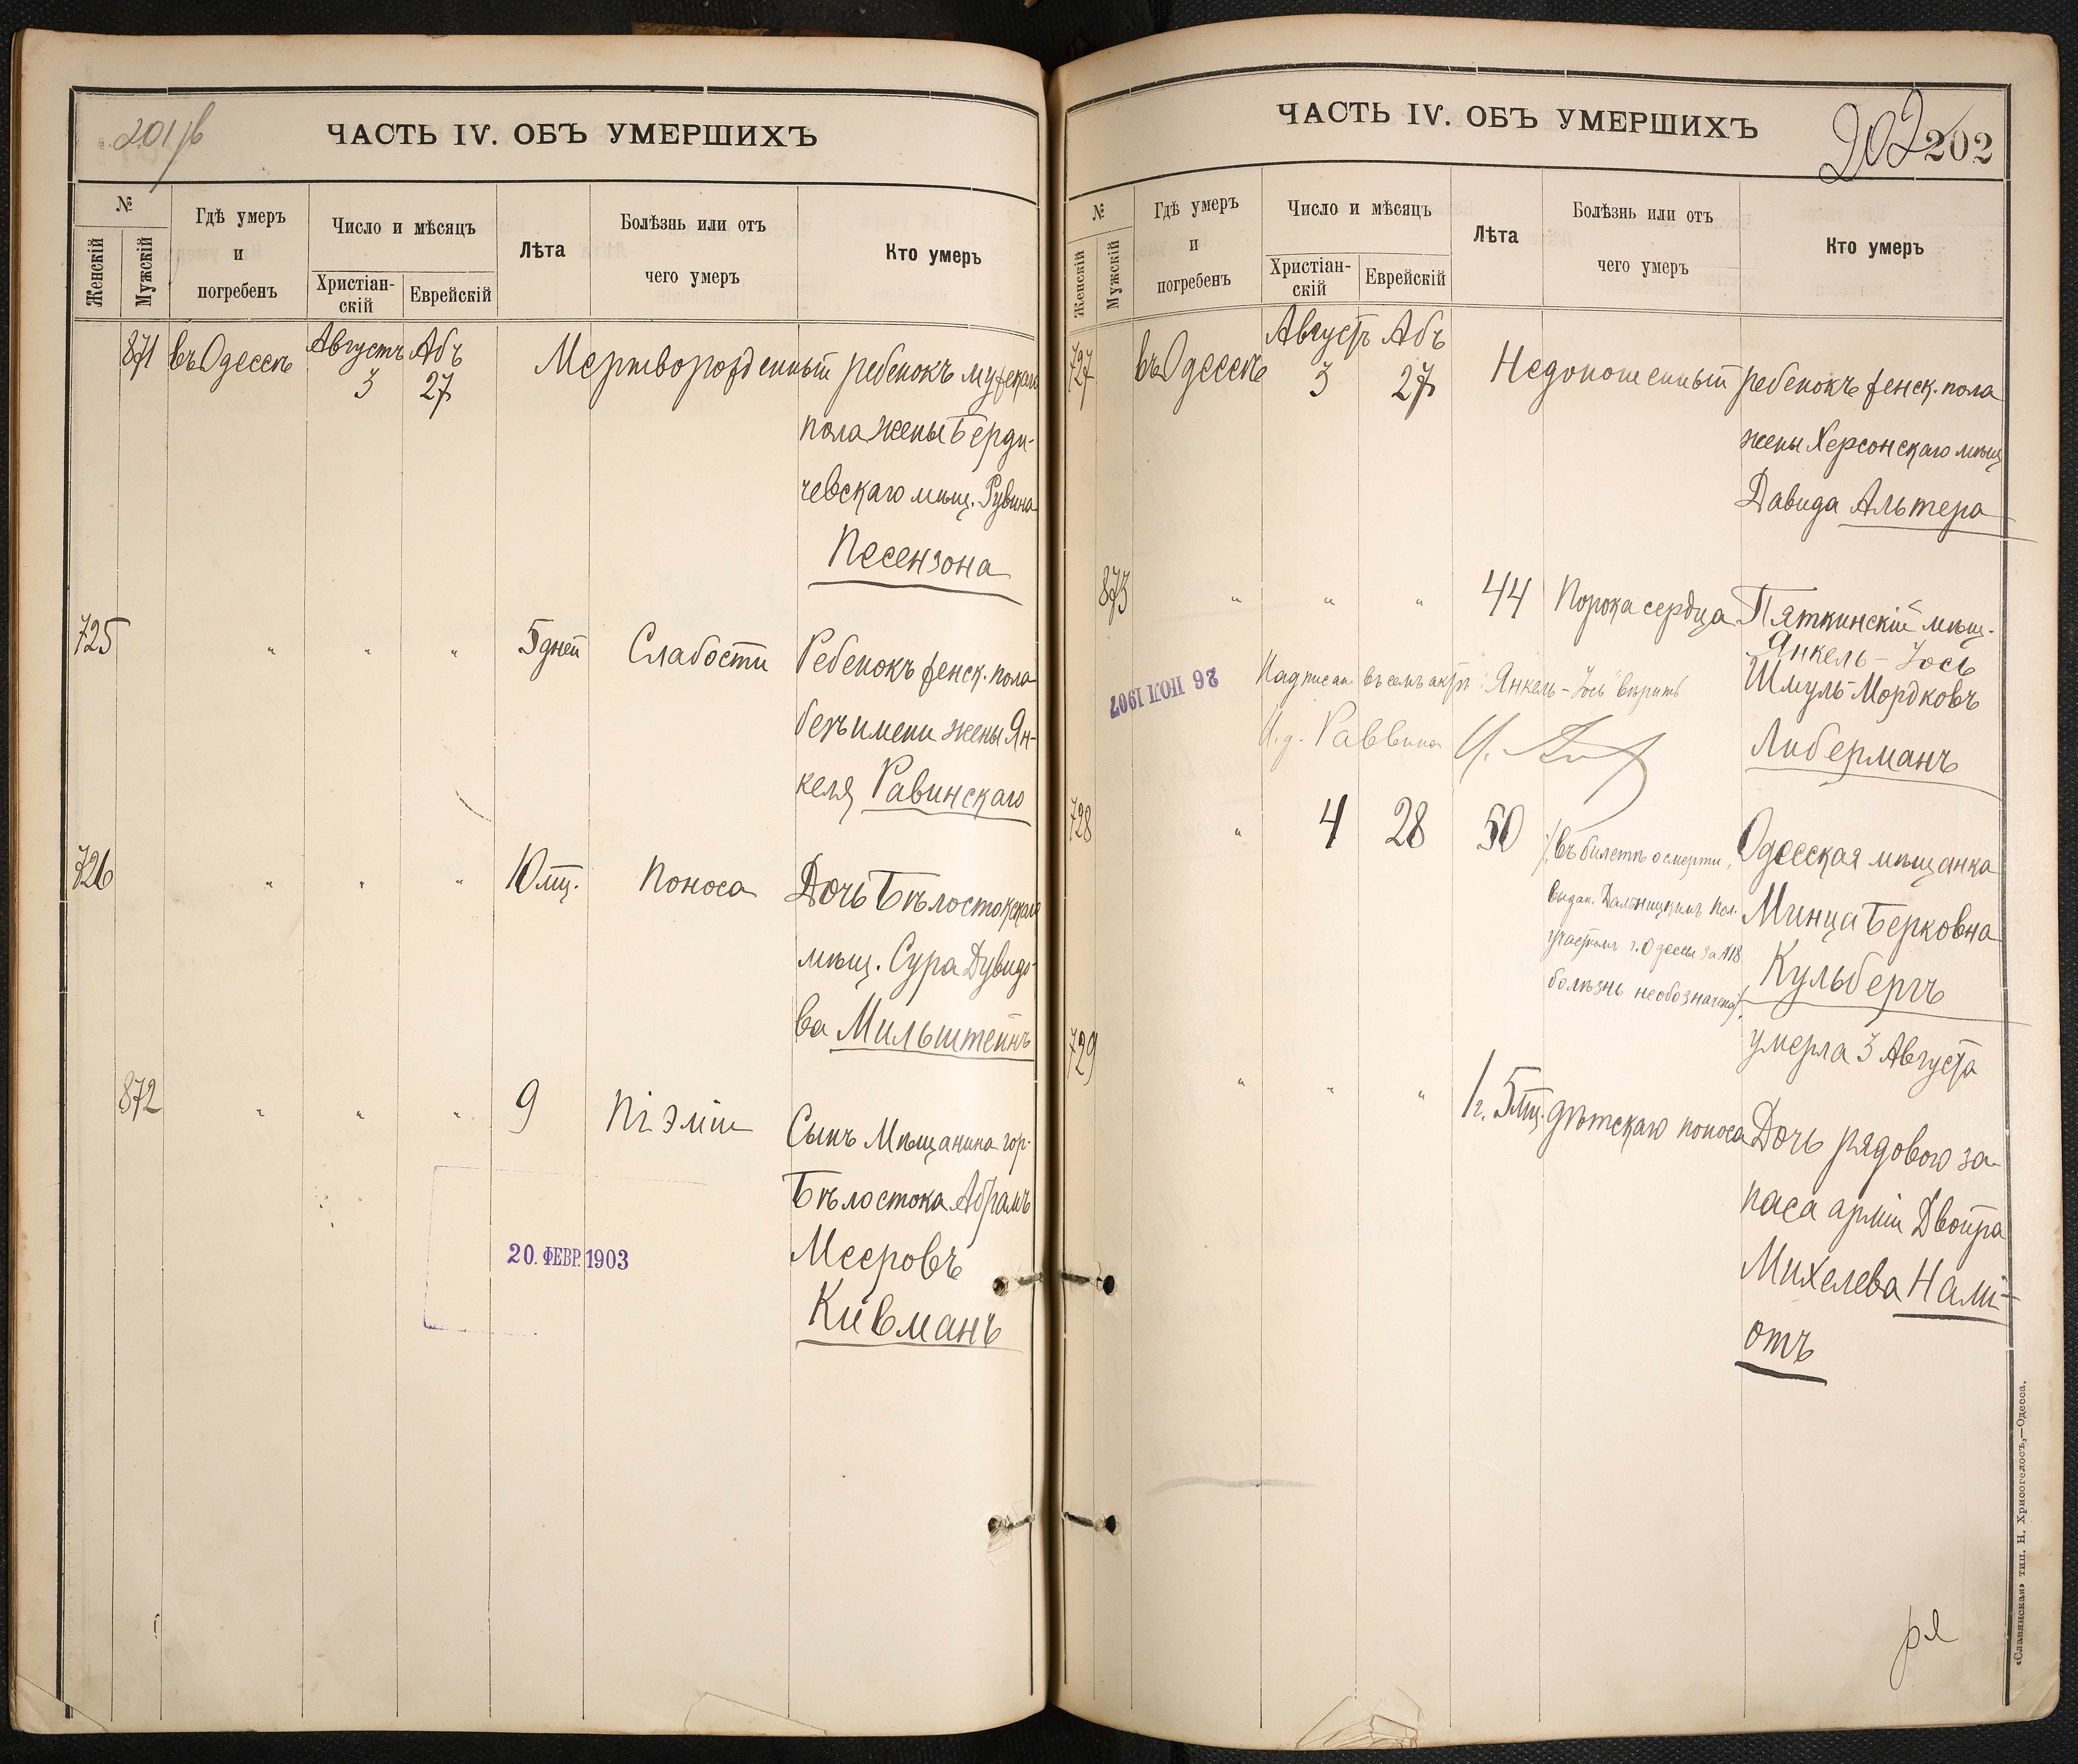 201 об
ЧАСТЬ IV. ОБЪ УМЕРШИХЪ
№
Женскій
Мужскій
Гдѣ умеръ
и
погребенъ
Число и мѣсяцъ
Христіан-
скій
Еврейскій
Лѣта
Болѣзнь или отъ
чего умеръ
Кто умеръ
871 въ Одессѣ Августъ Абъ
3 27
Мертворожденный ребенокъ мужскаго
пола жены Берди-
чевскаго мѣщ. Рувина
Песензона
725 " " " 5 дней Слабости Ребенокъ женск. пола
безъ имени жены Ян-
келя Равинскаго
726 " " " 10 мц. Поноса Дочь Бѣлостокскаго
мѣщ. Сура Дувидо-
ва Мильштейнъ
872 " " " 9 Піэміи Сынъ Мѣщанина гор.
Бѣлостока Абрамъ
Мееровъ
Кивманъ
20. ФЕВР. 1903
ЧАСТЬ IV. ОБЪ УМЕРШИХЪ
202 202
№
Женскій
Мужскій
Гдѣ умеръ
и
погребенъ
Число и мѣсяцъ
Христіан-
скій
Еврейскій
Лѣта
Болѣзнь или отъ
чего умеръ
Кто умеръ
727 въ Одессѣ Августъ Абъ
3 27
Недоношенный ребенокъ женск. пола
жены Херсонскаго мѣщ
Давида Альтера
873 " " " 44 Порока сердца Пяткинскій мѣщ.
Янкель-Іось
Шмуль-Мордковъ
Либерманъ
26 ІЮЛ 1907
Надписан. въ семъ актѣ "Янкель-Іось" вѣрить
И. д. Раввина
728 " 4 28 50 /въ билетѣ о смерти,
выдан. Дальницкимъ Пол.
участкомъ г. Одессы за №18
болѣзнь необозначена/
Одесская мѣщанка
Минца Берковна
Кульбергъ
умерла 3 Августа
729 " " " 1 г. 5 мц. дѣтскаго поноса Дочь рядового за-
паса арміи Двойра
Михелева Намі-
отъ
«Славянская» тип. Н. Хрисогелосъ,—Одесса.